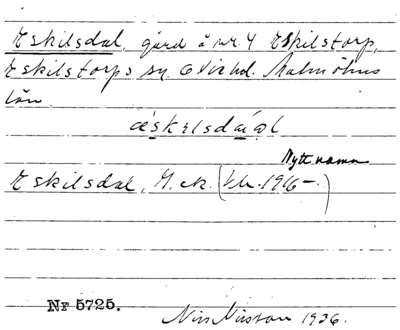 Eskilsdal, gård å nr. 4 Eskilstorp,
Eskilstorps sn. Oxie hd. Malmöhus
län.
Nytt namn
Eskilsdal, G. ek. (bl. 1916–.)
Nr 5725.
Nils Nilsson 1936.